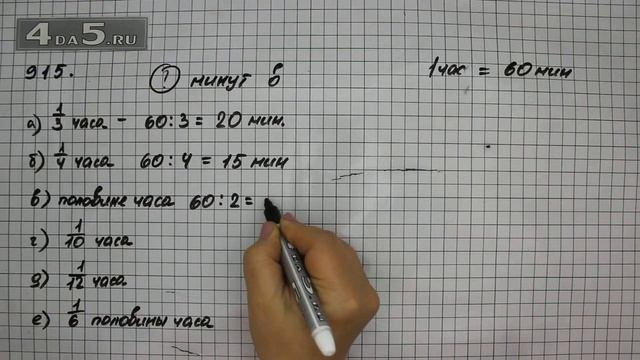 4DA5.RU
915. ? минут в
1 час = 60 мин
а) 1/3 часа - 60 : 3 = 20 мин.
б) 1/4 часа 60 : 4 = 15 мин
в) половине часа 60 : 2 =
г) 1/10 часа
д) 1/12 часа
е) 1/6 половины часа